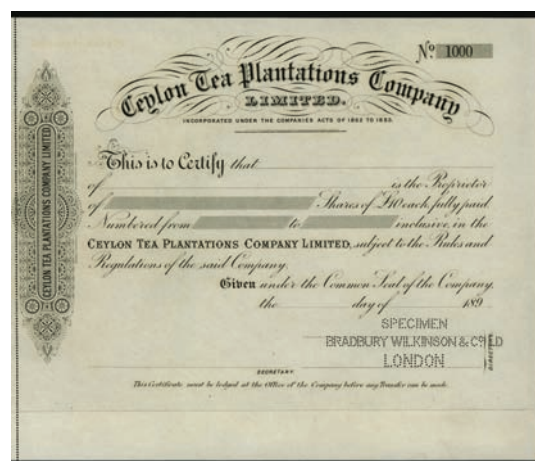 Nº 1000
Ceylon Tea Plantations Company
LIMITED.
INCORPORATED UNDER THE COMPANIES ACTS OF 1862 TO 1890.
This is to Certify that
of is the Proprietor
of Shares of £10 each, fully paid
Numbered from to inclusive, in the
CEYLON TEA PLANTATIONS COMPANY LIMITED, subject to the Rules and
Regulations of the said Company.
Given under the Common Seal of the Company,
the day of 189
SPECIMEN
BRADBURY WILKINSON & Cº LD
LONDON
DIRECTORS
SECRETARY
This Certificate must be lodged at the Office of the Company before any Transfer can be made.
CEYLON TEA PLANTATIONS COMPANY LIMITED